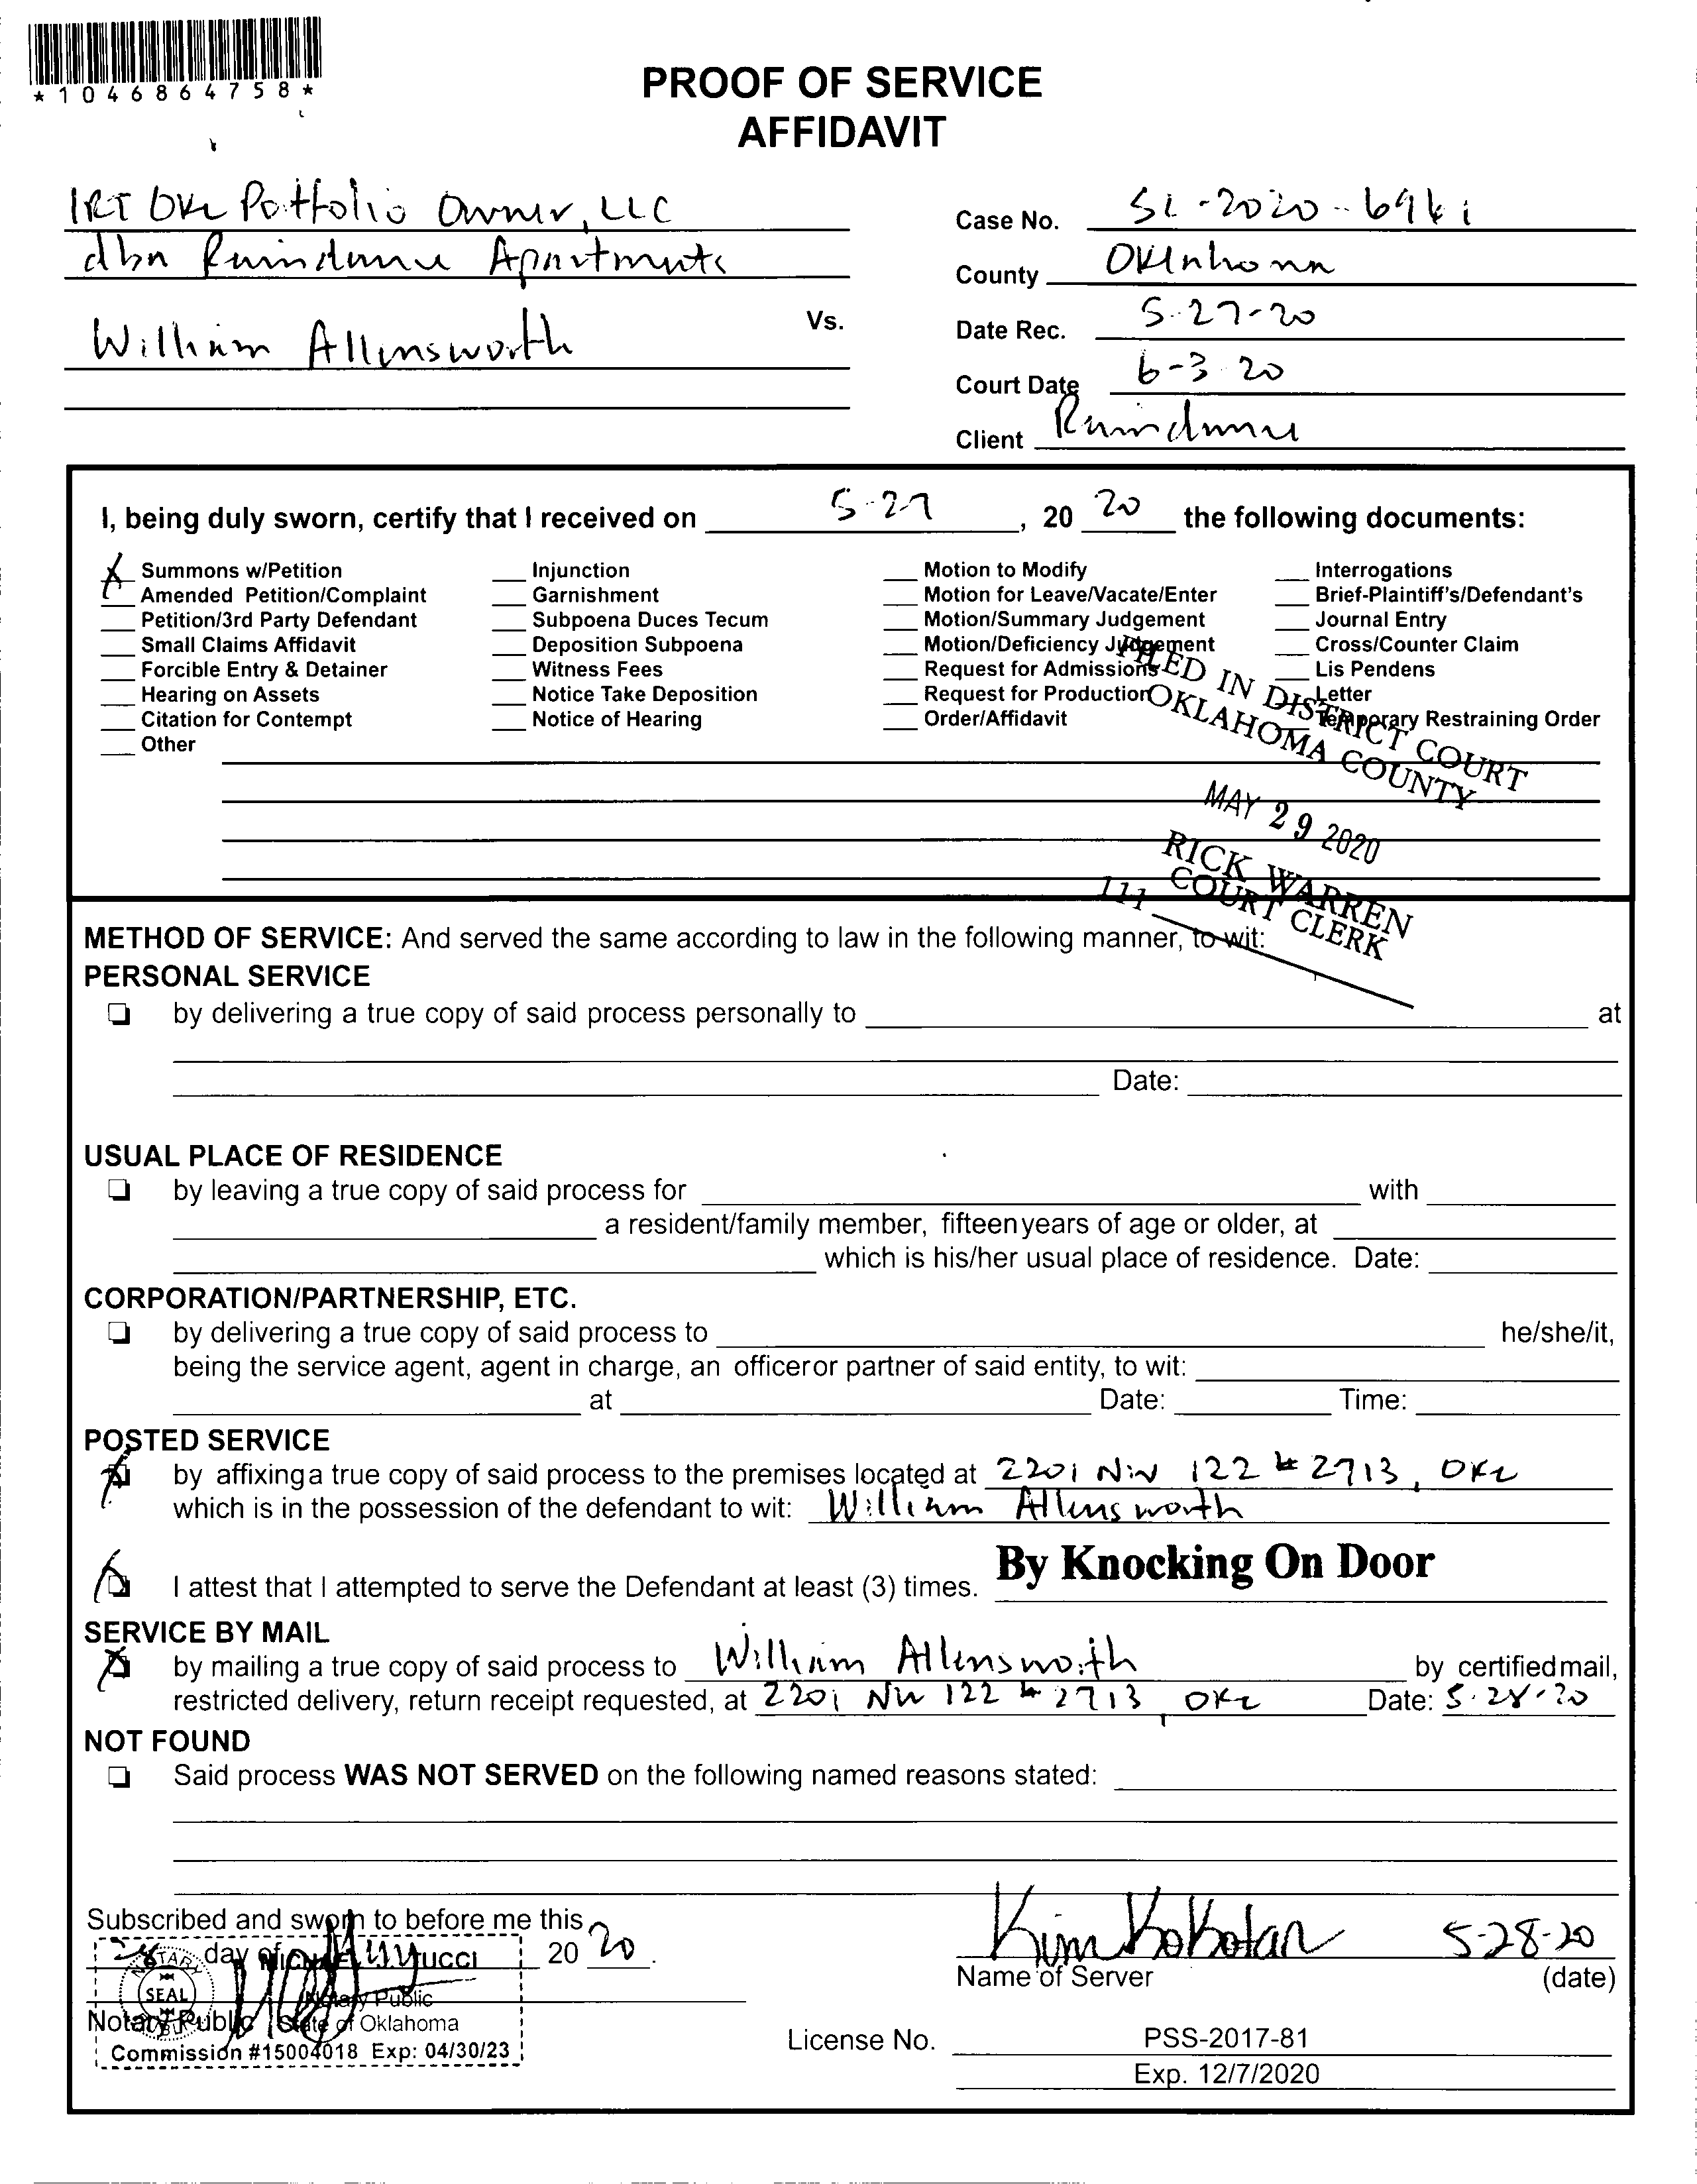 *1046864758*
PROOF OF SERVICE
AFFIDAVIT
IRT OKC Portfolio Owner, LLC
dba Raindance Apartments
Vs.
William Allensworth
Case No. SC-2020-6961
County Oklahoma
Date Rec. 5-27-20
Court Date 6-3-20
Client Raindance
I, being duly sworn, certify that I received on 5-27, 20 20 the following documents:
X Summons w/Petition
Amended Petition/Complaint
Petition/3rd Party Defendant
Small Claims Affidavit
Forcible Entry & Detainer
Hearing on Assets
Citation for Contempt
Other
Injunction
Garnishment
Subpoena Duces Tecum
Deposition Subpoena
Witness Fees
Notice Take Deposition
Notice of Hearing
Motion to Modify
Motion for Leave/Vacate/Enter
Motion/Summary Judgement
Motion/Deficiency Judgement
Request for Admissions
Request for Production
Order/Affidavit
Interrogations
Brief-Plaintiff's/Defendant's
Journal Entry
Cross/Counter Claim
Lis Pendens
Letter
Temporary Restraining Order
FILED IN DISTRICT COURT
OKLAHOMA COUNTY
MAY 29 2020
RICK WARREN
COURT CLERK
111
METHOD OF SERVICE: And served the same according to law in the following manner, to wit:
PERSONAL SERVICE
by delivering a true copy of said process personally to at
Date:
USUAL PLACE OF RESIDENCE
by leaving a true copy of said process for with
a resident/family member, fifteen years of age or older, at
which is his/her usual place of residence. Date:
CORPORATION/PARTNERSHIP, ETC.
by delivering a true copy of said process to he/she/it,
being the service agent, agent in charge, an officer or partner of said entity, to wit:
at Date: Time:
POSTED SERVICE
X by affixing a true copy of said process to the premises located at 2201 NW 122 # 2713, OKC
which is in the possession of the defendant to wit: William Allensworth
X I attest that I attempted to serve the Defendant at least (3) times. By Knocking On Door
SERVICE BY MAIL
X by mailing a true copy of said process to William Allensworth by certified mail,
restricted delivery, return receipt requested, at 2201 NW 122 # 2713, OKC Date: 5-28-20
NOT FOUND
Said process WAS NOT SERVED on the following named reasons stated:
Subscribed and sworn to before me this
28 day of 20 20.
Notary Public
NOTARY PUBLIC
SEAL
Notary Public
State of Oklahoma
Commission #15004018 Exp: 04/30/23
Kim Kokotan 5-28-20
Name of Server (date)
License No. PSS-2017-81
Exp. 12/7/2020